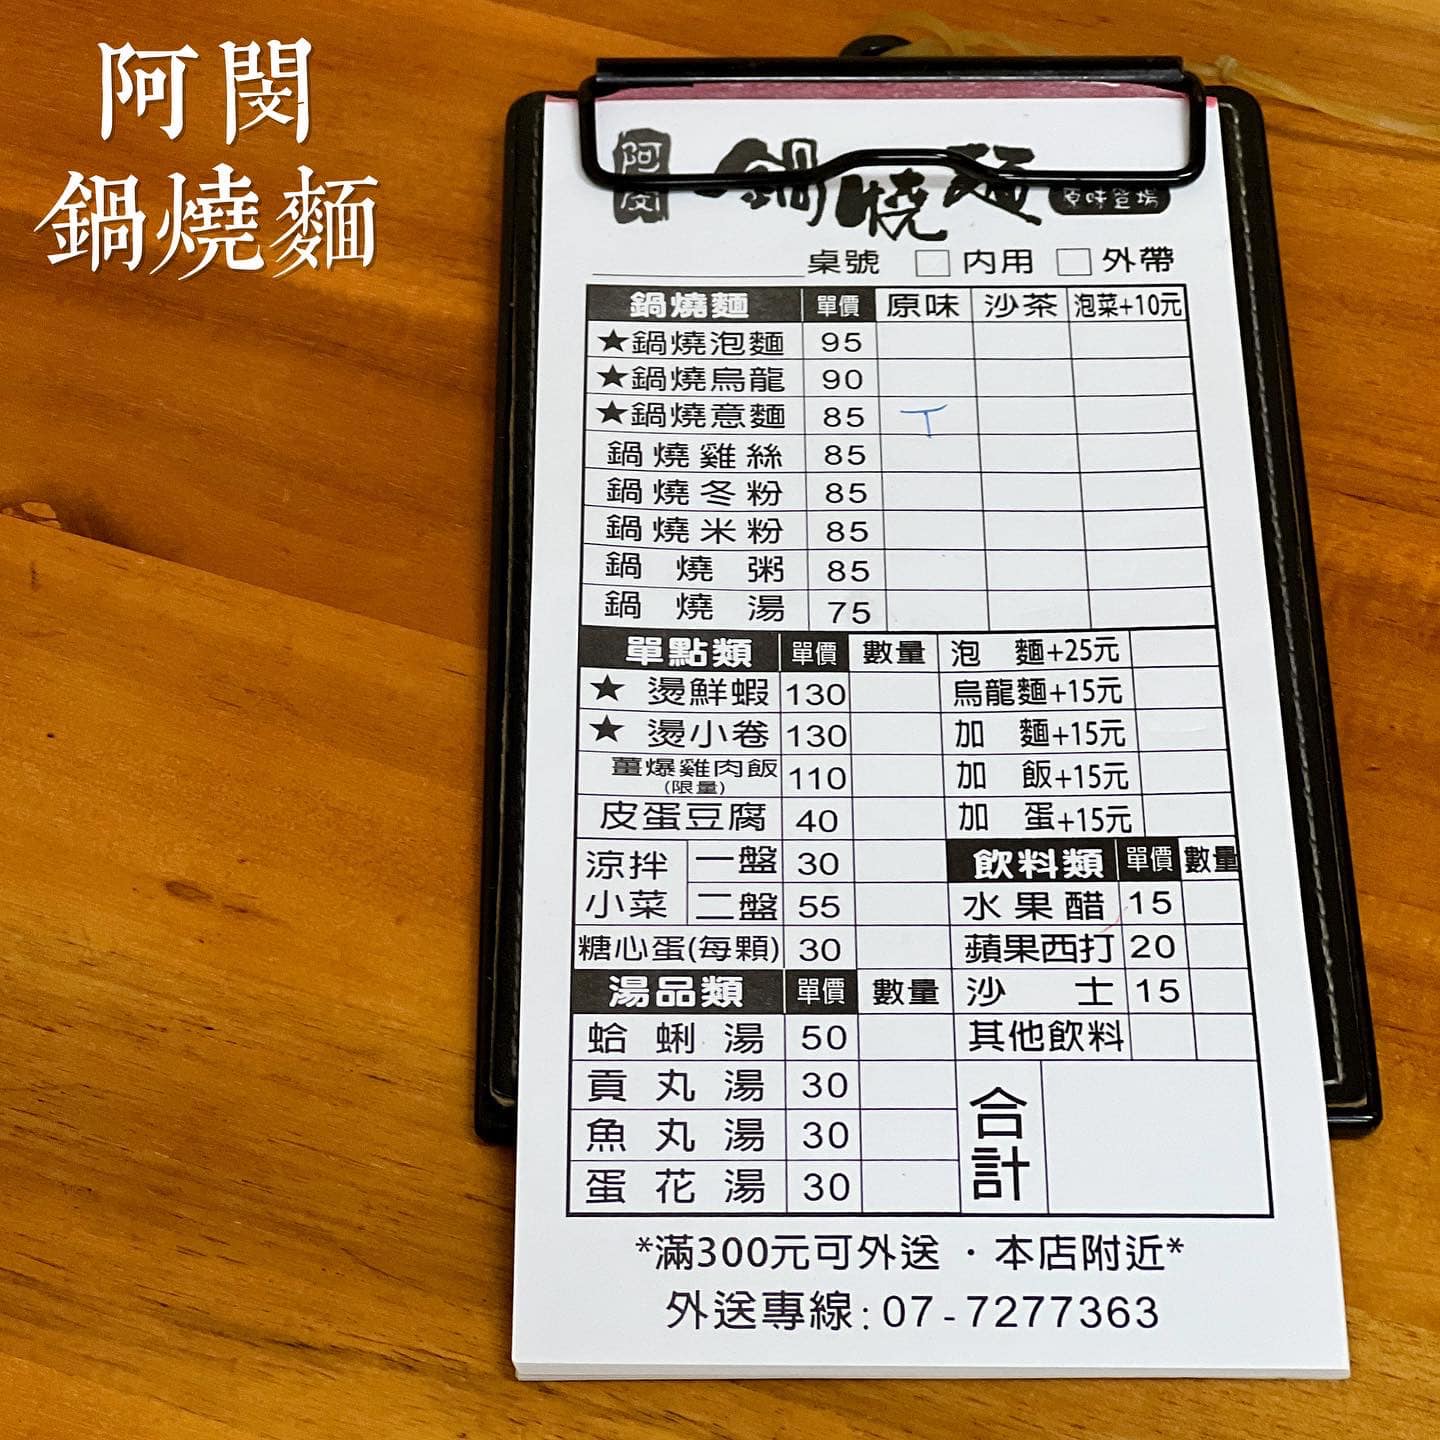 阿閔
鍋燒麵
阿閔 鍋燒麵 原味登場
桌號 內用 外帶
鍋燒麵 單價 原味 沙茶 泡菜+10元
★鍋燒泡麵 95
★鍋燒烏龍 90
★鍋燒意麵 85
鍋燒雞絲 85
鍋燒冬粉 85
鍋燒米粉 85
鍋燒粥 85
鍋燒湯 75
單點類 單價 數量 泡麵+25元
★燙鮮蝦 130 烏龍麵+15元
★燙小卷 130 加麵+15元
薑爆雞肉飯 110 加飯+15元
(限量)
皮蛋豆腐 40 加蛋+15元
涼拌 一盤 30 飲料類 單價 數量
小菜 二盤 55 水果醋 15
糖心蛋(每顆) 30 蘋果西打 20
湯品類 單價 數量 沙士 15
蛤蜊湯 50 其他飲料
貢丸湯 30 合計
魚丸湯 30
蛋花湯 30
*滿300元可外送・本店附近*
外送專線:07-7277363